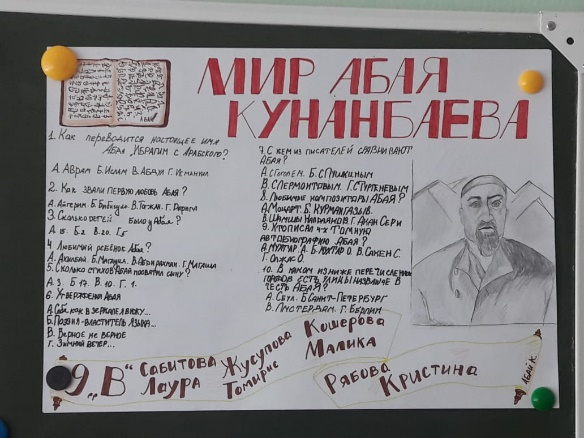 МИР АБАЯ
КУНАНБАЕВА
1. Как переводится настоящее имя
Абая „Ибрагим с Арабского?
А. Аврам Б. Ислам В. Абдул Г. Исмаил
2. Как звали первую любовь Абая?
А. Айгерим Б. В. Тогжан Г.
3. Сколько было у Абая?
А. 15. Б. 2 В. 20. Г. 5
4 Любимый ребёнок Абая?
А. Акылбай Б. Магауия В. Абдирахман Г.
5. Сколько стихов Абая посвятил сыну?
А. 3. Б 17. В. 10. Г. 1.
6. Абая
А. Себя как в зеркале я вижу...
Б. Поэзия-властитель языка...
В. Верное не верное
Г. Зимний вечер...
7. С кем из писателей сравнивают
Абая?
А. С Гоголем. Б. С Пушкиным
В. С Лермонтовым Г. С Тургеневым
8. Любимые композиторы Абая?
А. Моцарт. Б. Курмангазы В.
Г. Акан Сери
9. Кто писал 4-х томную
автобиографию Абая?
А. Мухтар. А. Б. Мухтар О. В. Сакен С.
Г. Олжас О.
10. В каком из ниже перечисленных
городов есть улицы названые в
честь Абая?
А. Сеул. Б. Санкт-Петербург
В. Амстердам. Г. Берлин
9 „В“ Сабитова Лаура
Жусупова Томирис
Кошерова Малика
Рябова Кристина
Абай К.